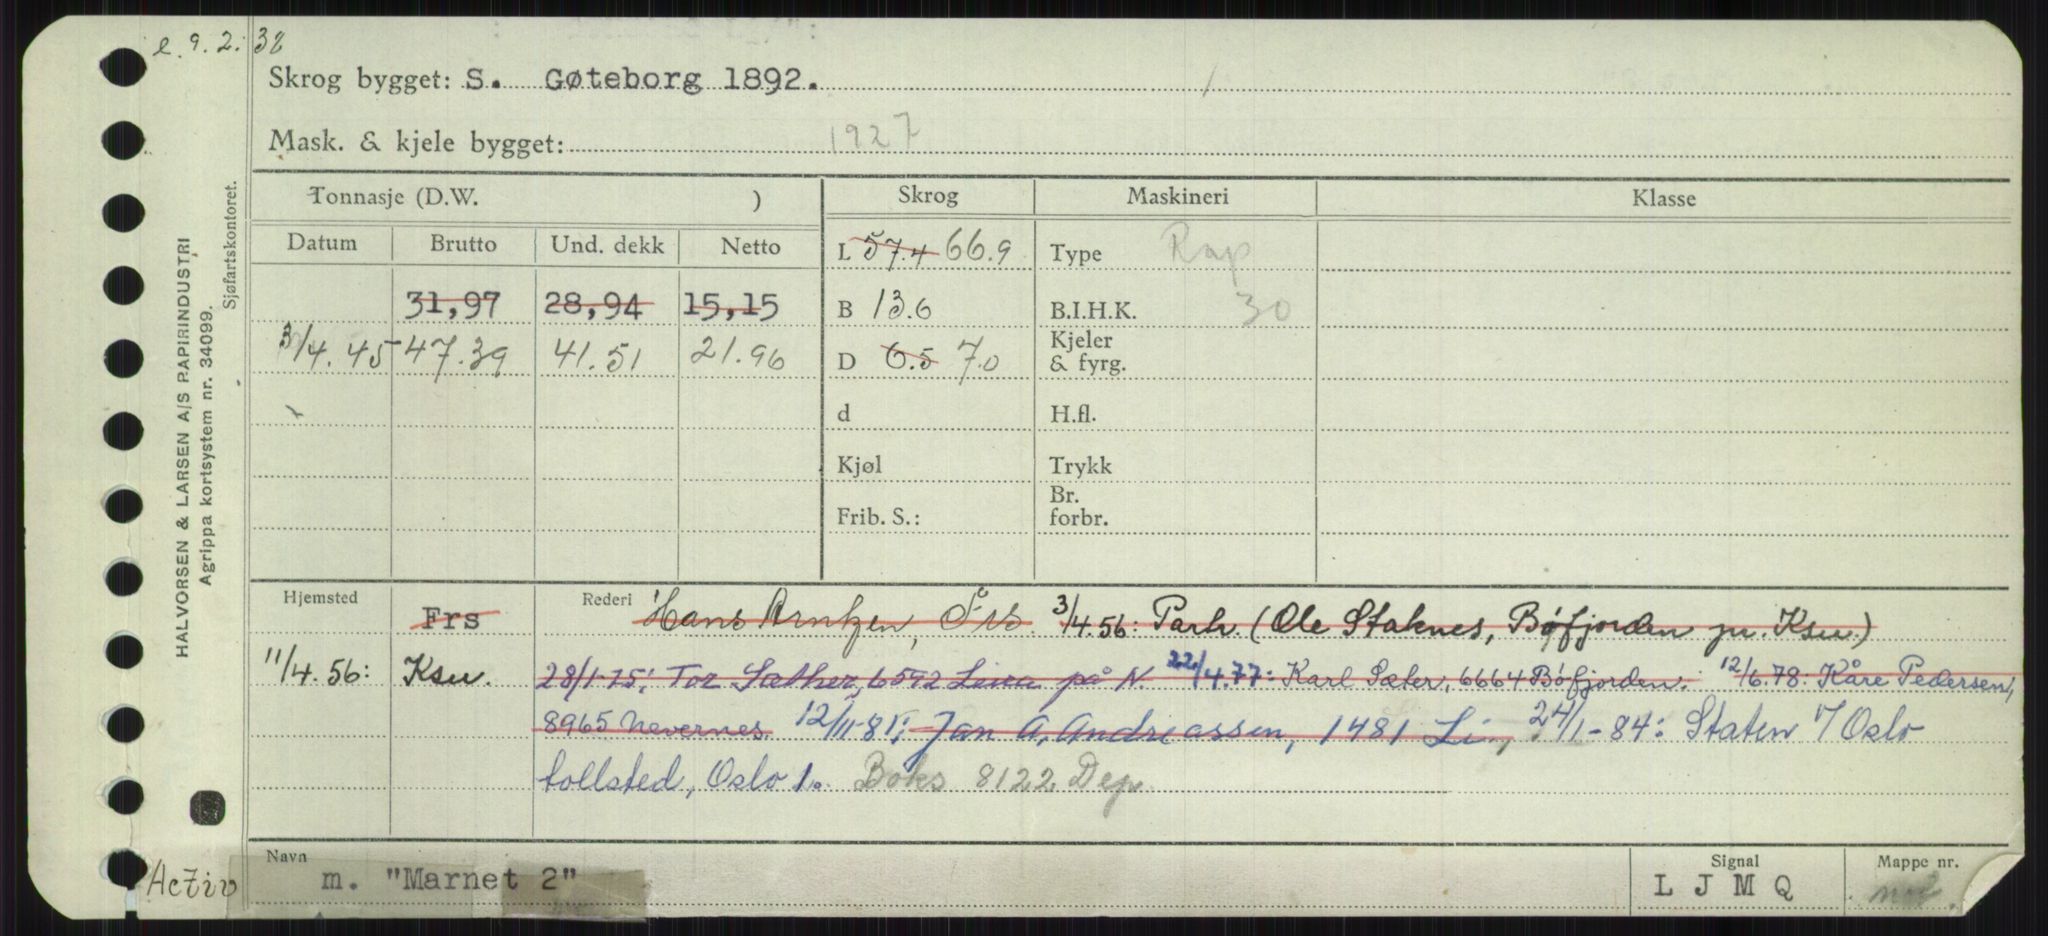 e. 9. 2. 38
Skrog bygget: S. Gøteborg 1892.
Mask. & kjele bygget: 1927
Tonnasje (D.W. ) Skrog Maskineri Klasse
Datum Brutto Und. dekk Netto L 57.4 66.9 Type Rap
31,97 28,94 15,15 B 13.6 B.I.H.K. 30
3/4.45 47.39 41.51 21.96 D 6.5 7.0 Kjeler & fyrg.
d H.fl.
Kjøl Trykk
Frib. S.: Br. forbr.
Hjemsted Frs Rederi Hans Arntzen, 3/4.56: Parh. (Ole Staknes, Bøfjorden pr. Ksu.)
11/4.56: Ksu. 28/1-75: Tor Sæther, 6592 på N. 22/4.77: Karl Sæter, 6664 Bøfjorden. 12/6.78: Kåre Pedersen,
8965 Nevernes. 12/11-81: Jan A. Andreassen, 1481 Li 24/1-84: Staten v/ Oslo
tollsted, Oslo 1. Boks 8122 Dep
Navn Signal Mappe nr.
Activ m. "Marnet 2" L J M Q
HALVORSEN & LARSEN A/S PAPIRINDUSTRI
Agrippa kortsystem nr. 34099.
Sjøfartskontoret.